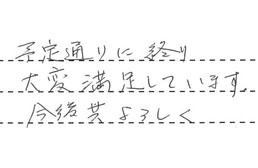 予定通りに終り
大変満足しています。
今後共よろしく